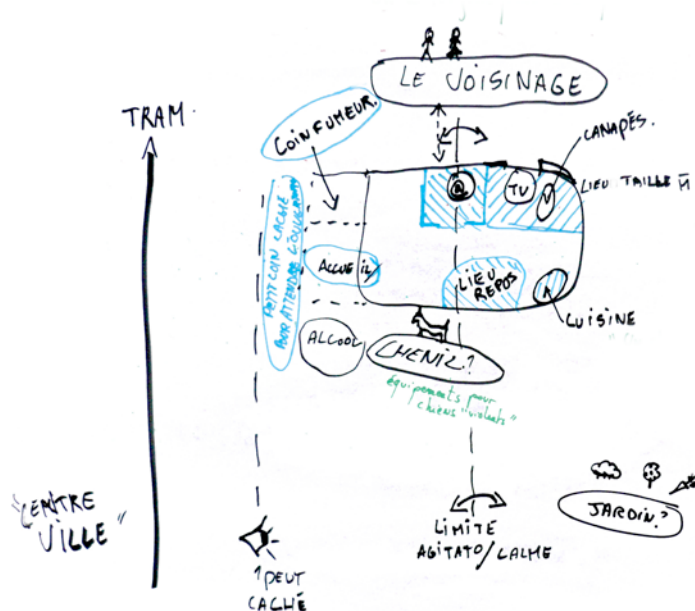 LE VOISINAGE
TRAM.
COIN FUMEUR.
CANAPÉS.
TV
LIEU TAILLE M
PETIT COIN CACHÉ
POUR ATTENDRE L'OUVERTURE
ACCUEIL
LIEU
REPOS
CUISINE
ALCOOL
CHENIL?
équipements pour
chiens "violents"
"CENTRE
VILLE"
JARDIN?
LIMITE
AGITATO/CALME
1 PEUT
CACHÉ